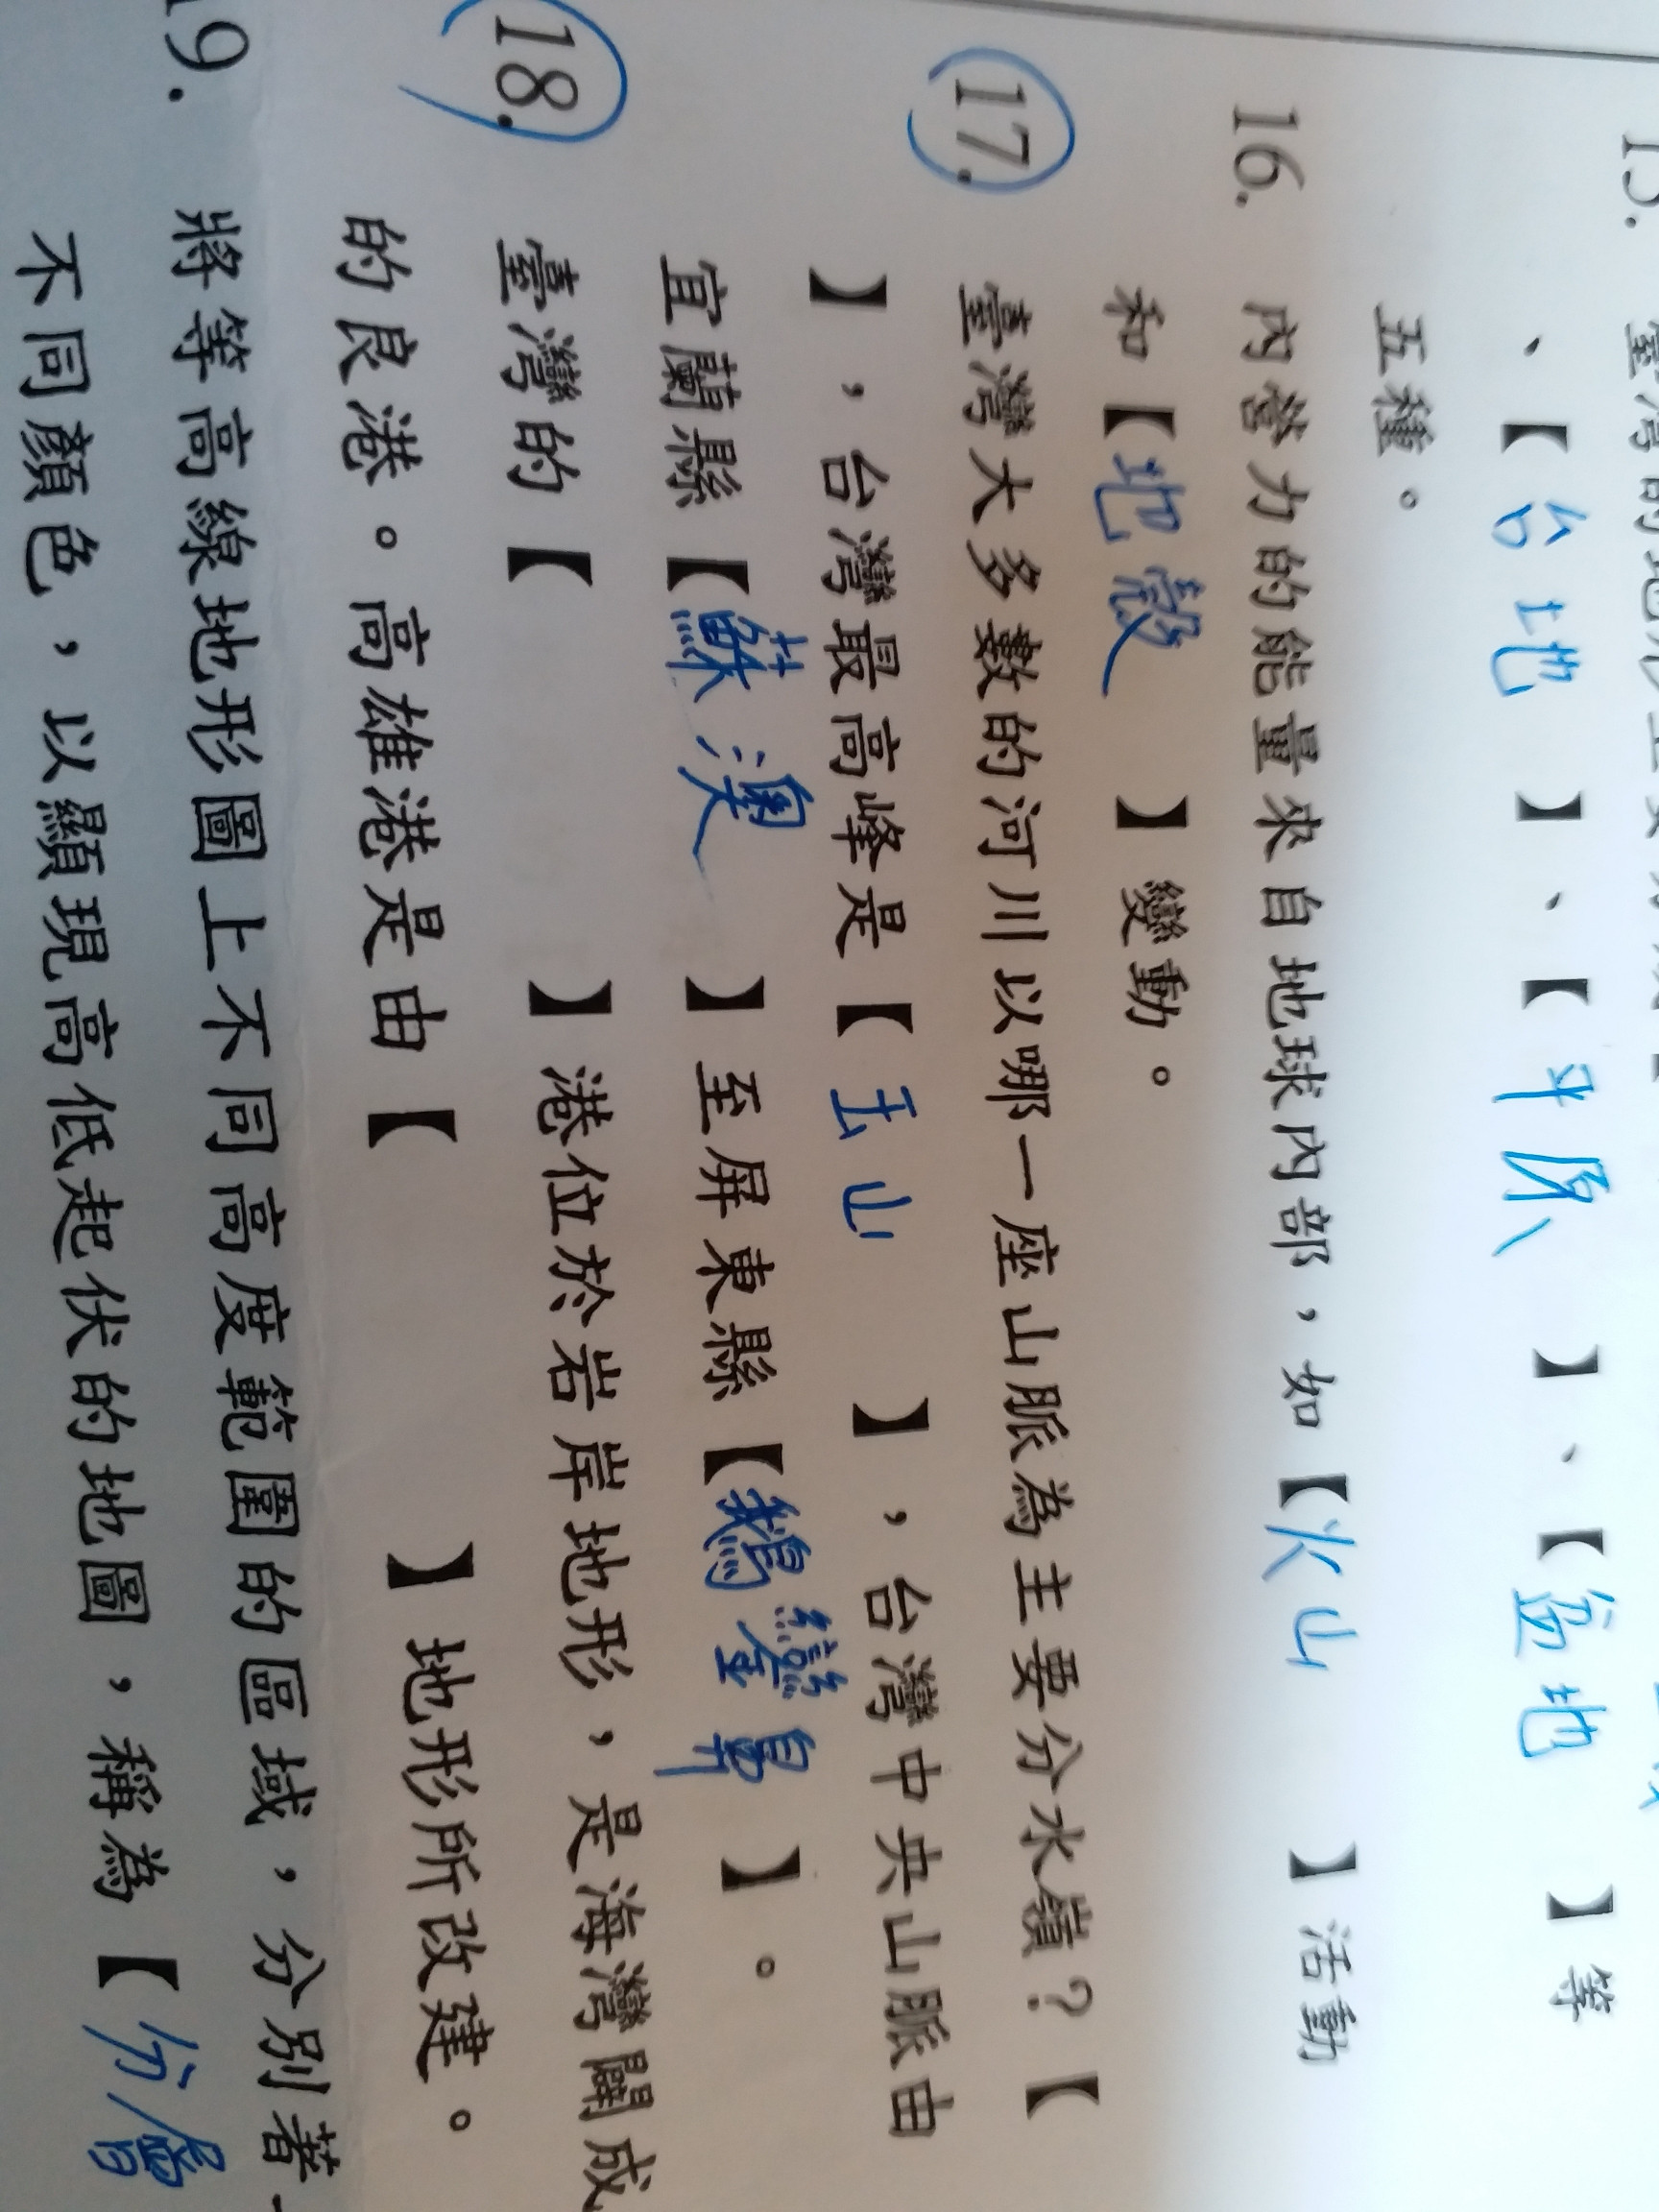 、【台地】、【平原】、【盆地】等
五種。
16. 內營力的能量來自地球內部，如【火山】活動
和【地殼】變動。
17. 臺灣大多數的河川以哪一座山脈為主要分水嶺？【
】，台灣最高峰是【玉山】，台灣中央山脈由
宜蘭縣【蘇澳】至屏東縣【鵝鑾鼻】。
18. 臺灣的【　】港位於岩岸地形，是海灣闢成
的良港。高雄港是由【　】地形所改建。
19. 將等高線地形圖上不同高度範圍的區域，分別著
不同顏色，以顯現高低起伏的地圖，稱為【分層